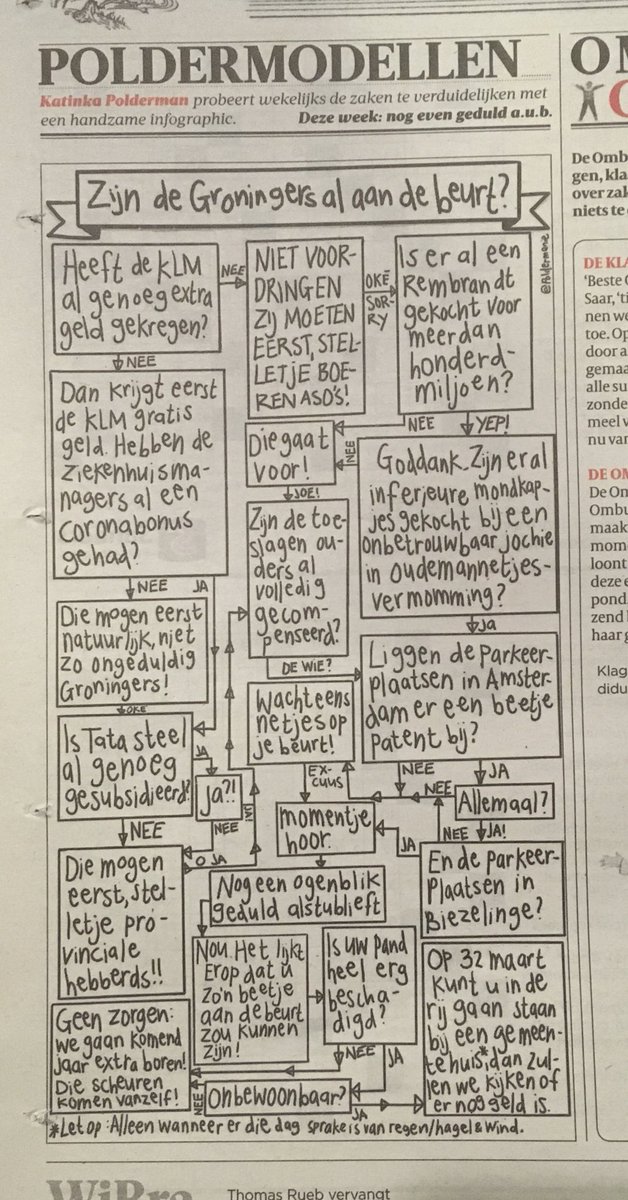 POLDERMODELLEN
Katinka Polderman probeert wekelijks de zaken te verduidelijken met
een handzame infographic. Deze week: nog even geduld a.u.b.
Zijn de Groningers al aan de beurt?
@Poldermone
Heeft de KLM
al genoeg extra
geld gekregen?
NEE
NIET VOOR-
DRINGEN
ZIJ MOETEN
EERST, STEL-
LETJE BOE-
REN ASO'S!
OKÉ
SOR-
RY
Is er al een
Rembrandt
gekocht voor
meer dan
honderd-
miljoen?
NEE
Dan krijgt eerst
de KLM gratis
geld. Hebben de
ziekenhuisma-
nagers al een
coronabonus
gehad?
NEE
YEP!
Die gaat
voor!
NEE
JOE!
Goddank. Zijn er al
inferieure mondkap-
jes gekocht bij een
onbetrouwbaar jochie
in oudemannetjes-
vermomming?
Ja
Zijn de toe-
slagen ou-
ders al
volledig
gecom-
penseerd?
DE WIE?
NEE
JA
Die mogen eerst
natuurlijk, niet
zo ongeduldig
Groningers!
OKE
Liggen de parkeer-
plaatsen in Amster-
dam er een beetje
patent bij?
NEE
JA
Wacht eens
netjes op
je beurt!
EX-
CUUS
Is Tata steel
al genoeg
gesubsidieerd?
JA
Ja?!
NEE
JA!
NEE
Allemaal?
NEE
NEE
JA!
momentje
hoor.
JA
En de parkeer-
plaatsen in
Biezelinge?
Die mogen
eerst, stel-
letje pro-
vinciale
hebberds!!
O JA
Nog een ogenblik
geduld alstublieft
Nou. Het lijkt
erop dat u
zo'n beetje
aan de beurt
zou kunnen
zijn!
Is uw pand
heel erg
bescha-
digd?
NEE
JA
Op 32 maart
kunt u in de
rij gaan staan
bij een gemeen-
tehuis*, dan zul-
len we kijken of
er nog geld is.
Geen zorgen:
we gaan komend
jaar extra boren!
Die scheuren
komen vanzelf!
NEE
Onbewoonbaar?
JA
*Let op: Alleen wanneer er die dag sprake is van regen/hagel & wind.
OM
De Omb
gen, kla
over zak
niets te
DE KLA
'Beste O
Saar, 'ti
nen we
toe. Op
door a
gemaa
alle su
zonde
meel v
nu van
DE OM
De Om
Ombu
maakt
mom
loont
deze e
pond.
zend
haar g
Klag
didu
WiPro
Thomas Rueb vervangt